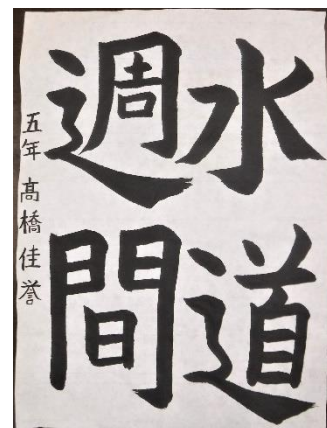 水道
週間
五年 髙橋佳誉